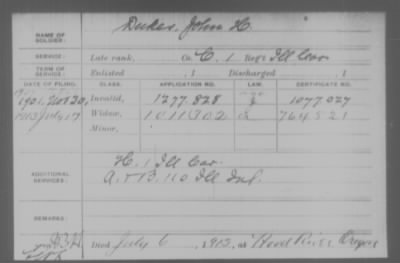 NAME OF SOLDIER: Dukes, John H.
SERVICE: Late rank, Co. C, 1 Reg't Ill Cav
TERM OF SERVICE: Enlisted , 1 Discharged , 1
DATE OF FILING. CLASS. APPLICATION NO. LAW. CERTIFICATE NO.
1901, Nov 20, Invalid, 1277.828 1077.027
1912 July 17 Widow, 1011302 764521
Minor,
ADDITIONAL SERVICES: H. 1 Ill Cav
A. & B. 110 Ill Inf.
REMARKS:
Died July 6, 1912, at Hood River Oregon